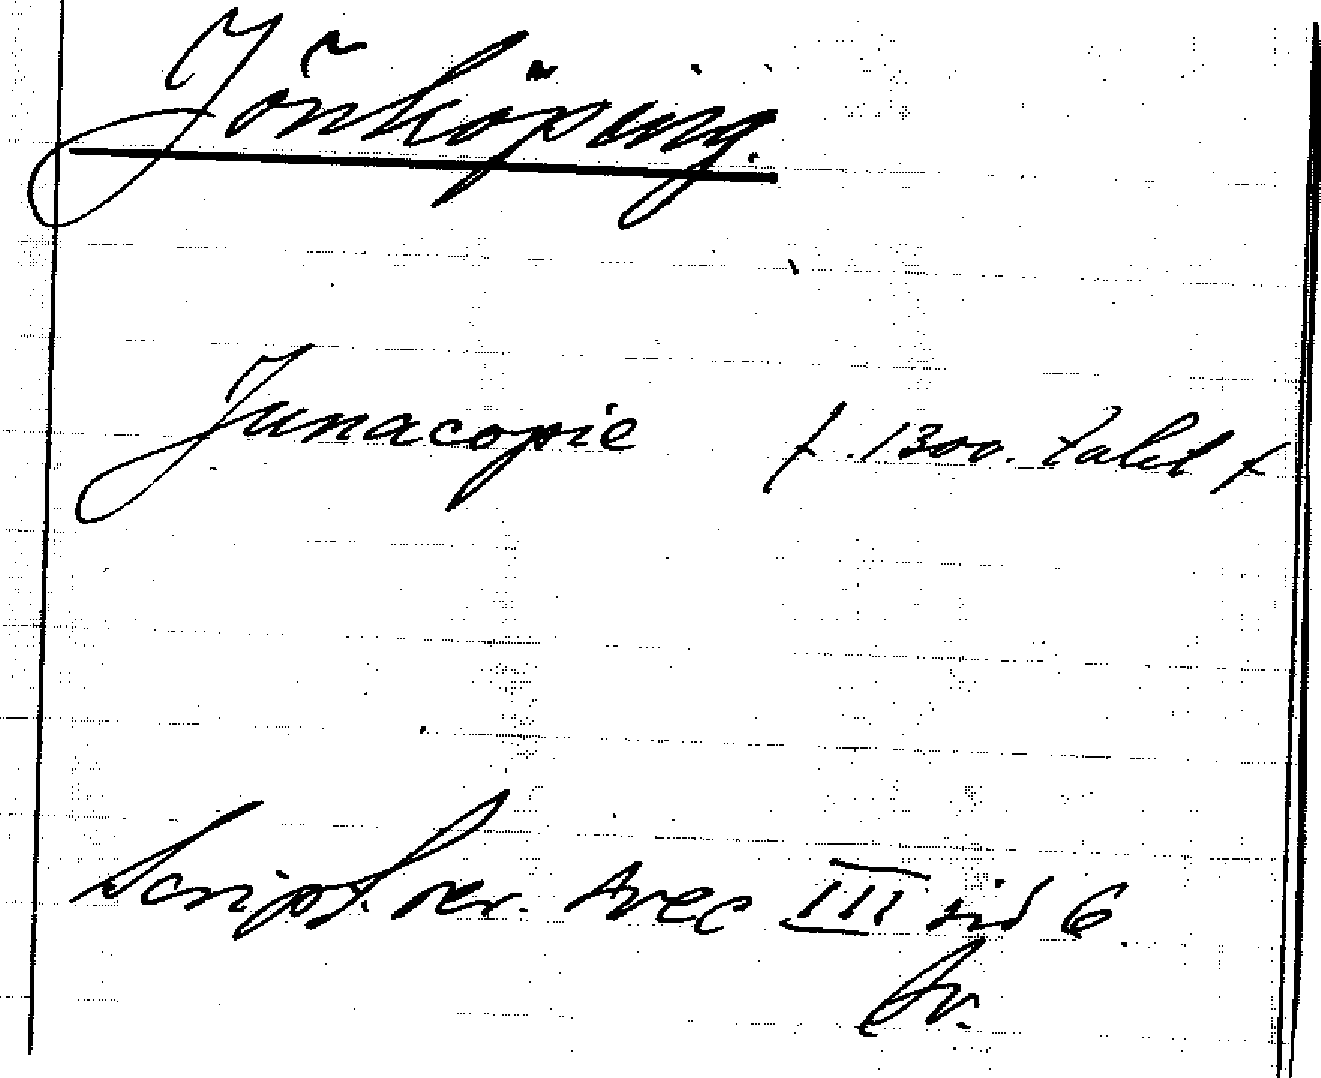 Jönköping.
Junacopie f. 1300. talet f
Script. rer. svec III sid 6
br.